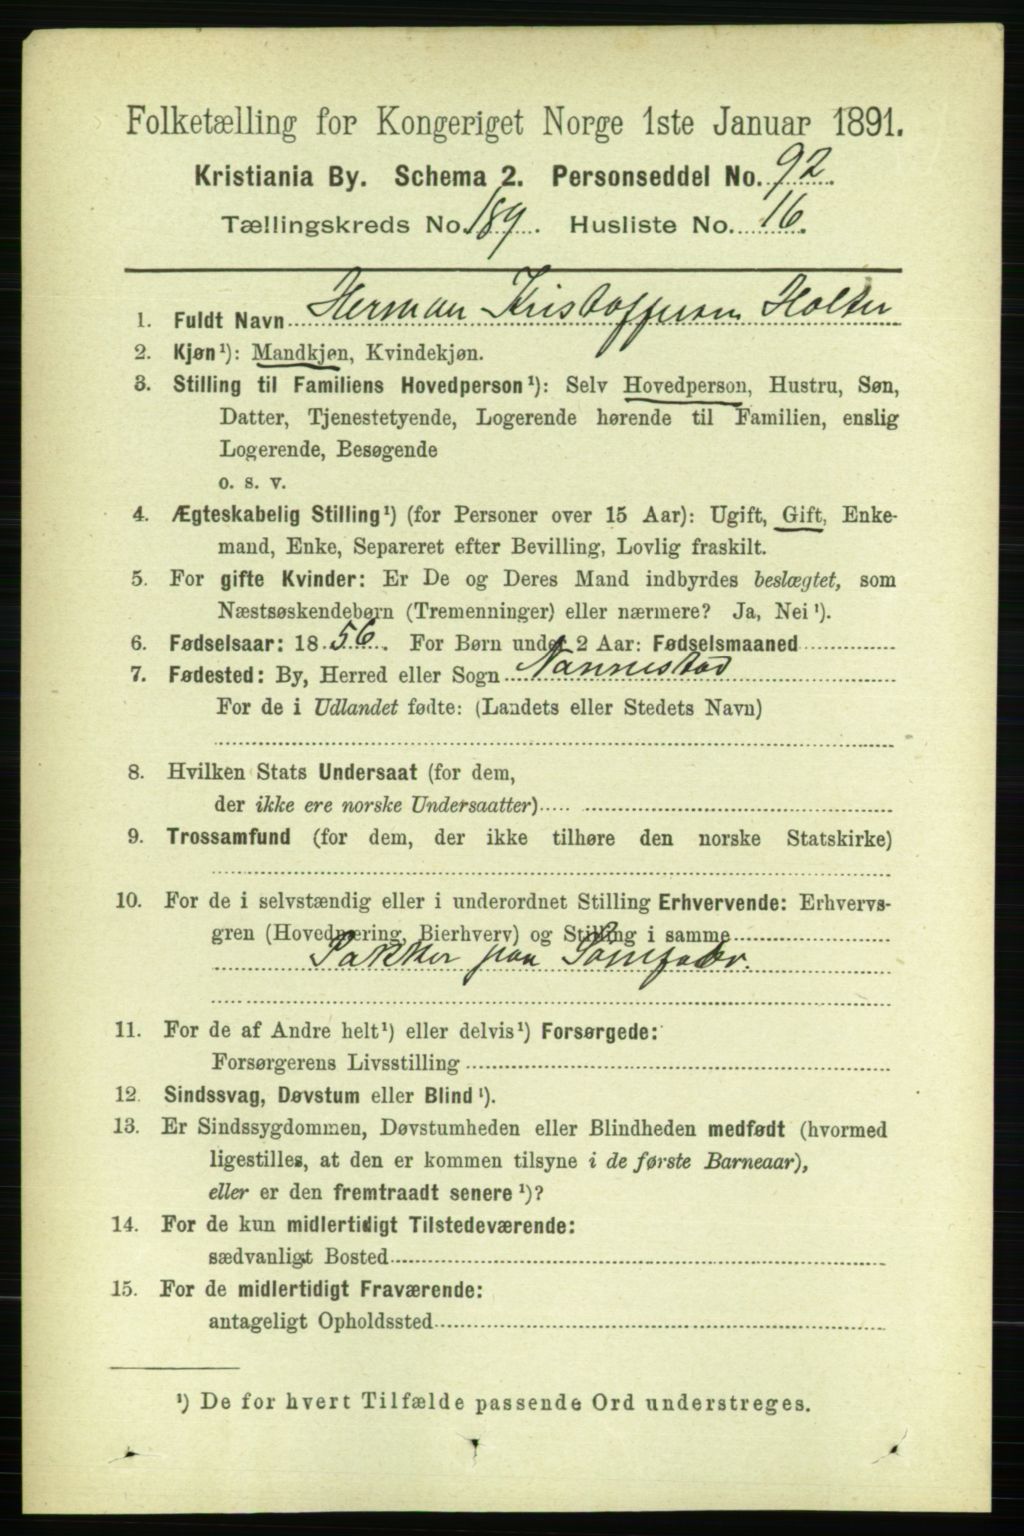 Folketælling for Kongeriget Norge 1ste Januar 1891.
Kristiania By. Schema 2. Personseddel No. 92.
Tællingskreds No. 189. Husliste No. 16.
1. Fuldt Navn Herman Kristoffersen Holter
2. Kjøn¹): Mandkjøn, Kvindekjøn.
3. Stilling til Familiens Hovedperson¹): Selv Hovedperson, Hustru, Søn,
Datter, Tjenestetyende, Logerende hørende til Familien, enslig
Logerende, Besøgende
o. s. v.
4. Ægteskabelig Stilling¹) (for Personer over 15 Aar): Ugift, Gift, Enke-
mand, Enke, Separeret efter Bevilling, Lovlig fraskilt.
5. For gifte Kvinder: Er De og Deres Mand indbyrdes beslægtet, som
Næstsøskendebørn (Tremenninger) eller nærmere? Ja, Nei¹).
6. Fødselsaar: 1856. For Børn under 2 Aar: Fødselsmaaned
7. Fødested: By, Herred eller Sogn Nannestad
For de i Udlandet fødte: (Landets eller Stedets Navn)
8. Hvilken Stats Undersaat (for dem,
der ikke ere norske Undersaatter)
9. Trossamfund (for dem, der ikke tilhøre den norske Statskirke)
10. For de i selvstændig eller i underordnet Stilling Erhvervende: Erhvervs-
gren (Hovednæring, Bierhverv) og Stilling i samme
Pakker paa
11. For de af Andre helt¹) eller delvis¹) Forsørgede:
Forsørgerens Livsstilling
12. Sindssvag, Døvstum eller Blind¹).
13. Er Sindssygdommen, Døvstumheden eller Blindheden medfødt (hvormed
ligestilles, at den er kommen tilsyne i de første Barneaar),
eller er den fremtraadt senere¹)?
14. For de kun midlertidigt Tilstedeværende:
sædvanligt Bosted
15. For de midlertidigt Fraværende:
antageligt Opholdssted
¹) De for hvert Tilfælde passende Ord understreges.